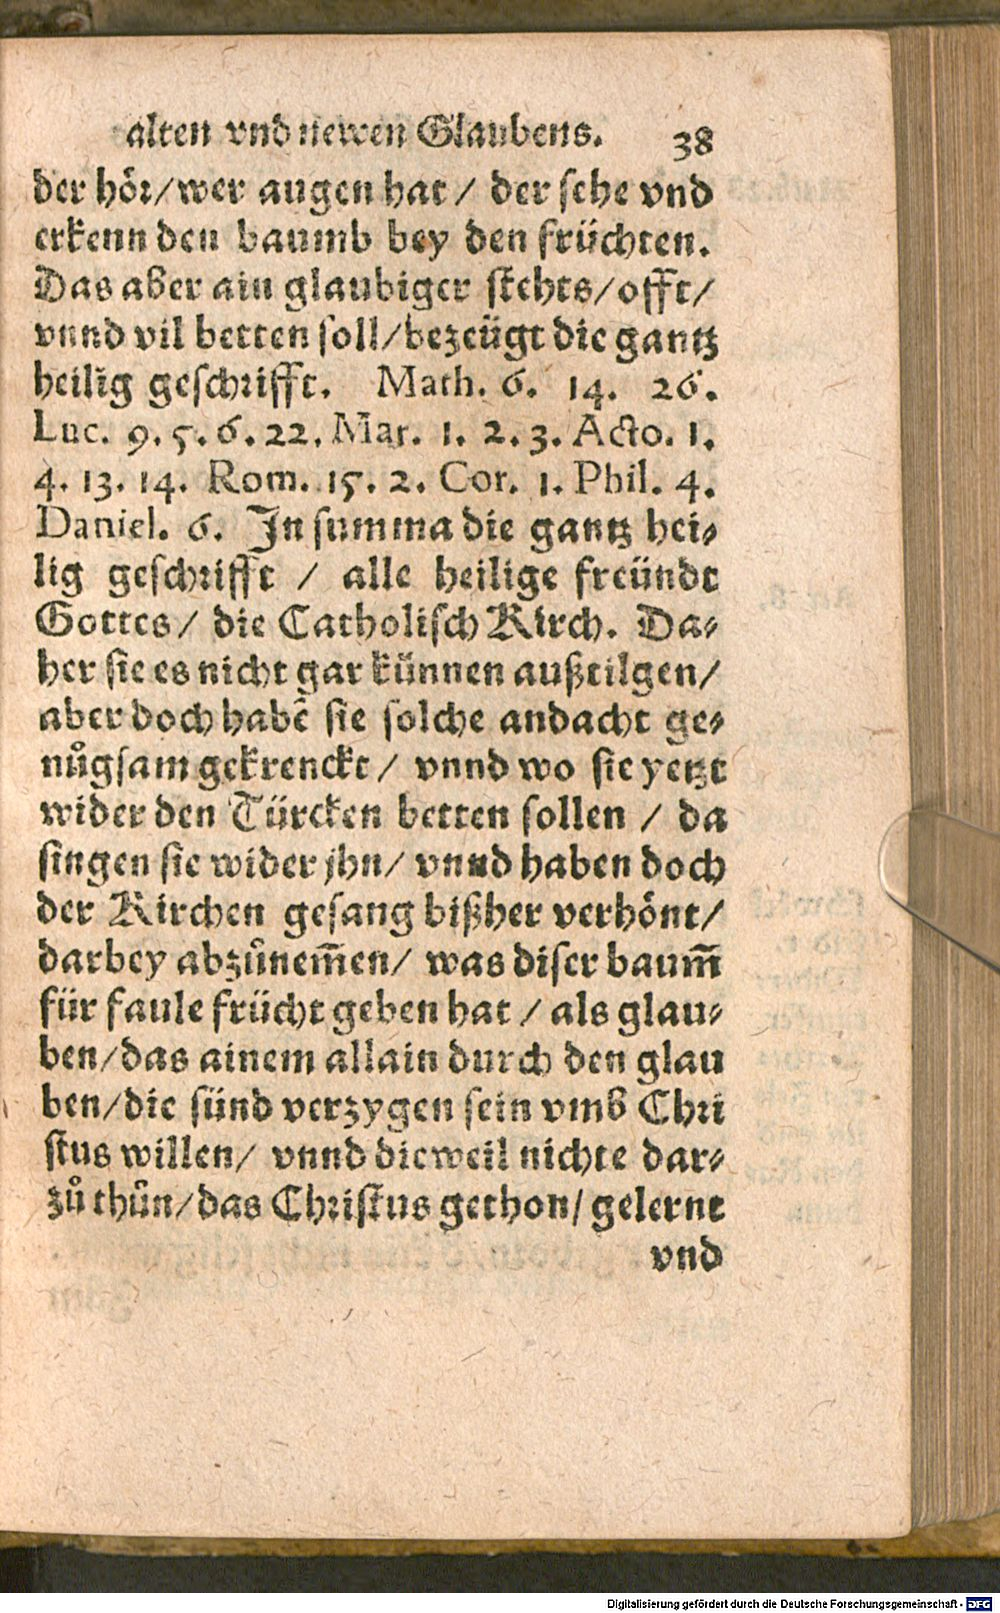 alten vnd newen Glaubens. 38
der hör/wer augen hat/ der sehe vnd
erkenn den baumb bey den früchten.
Das aber ain glaubiger stehts/offt/
vnnd vil betten soll/bezeügt die gantz
heilig geschrifft. Math. 6. 14. 26.
Luc. 9. 5. 6. 22. Mar. 1. 2. 3. Acto. 1.
4. 13. 14. Rom. 15. 2. Cor. 1. Phil. 4.
Daniel. 6. In summa die gantz hei-
lig geschrifft / alle heilige freündt
Gottes/ die Catholisch Kirch. Da-
her sie es nicht gar künnen außtilgen/
aber doch habẽ sie solche andacht ge-
nůgsam gekrenckt/ vnnd wo sie yetzt
wider den Türcken betten sollen / da
singen sie wider jhn/ vnnd haben doch
der Kirchen gesang bißher verhönt/
darbey abzůnem̃en/ was diser baum̃
für faule frücht geben hat / als glau-
ben/das ainem allain durch den glau
ben/die sünd verzygen sein vmb Chri
stus willen/ vnnd dieweil nichts dar-
zů thůn/das Christus gethon/ gelernt
vnd
Digitalisierung gefördert durch die Deutsche Forschungsgemeinschaft - DFG